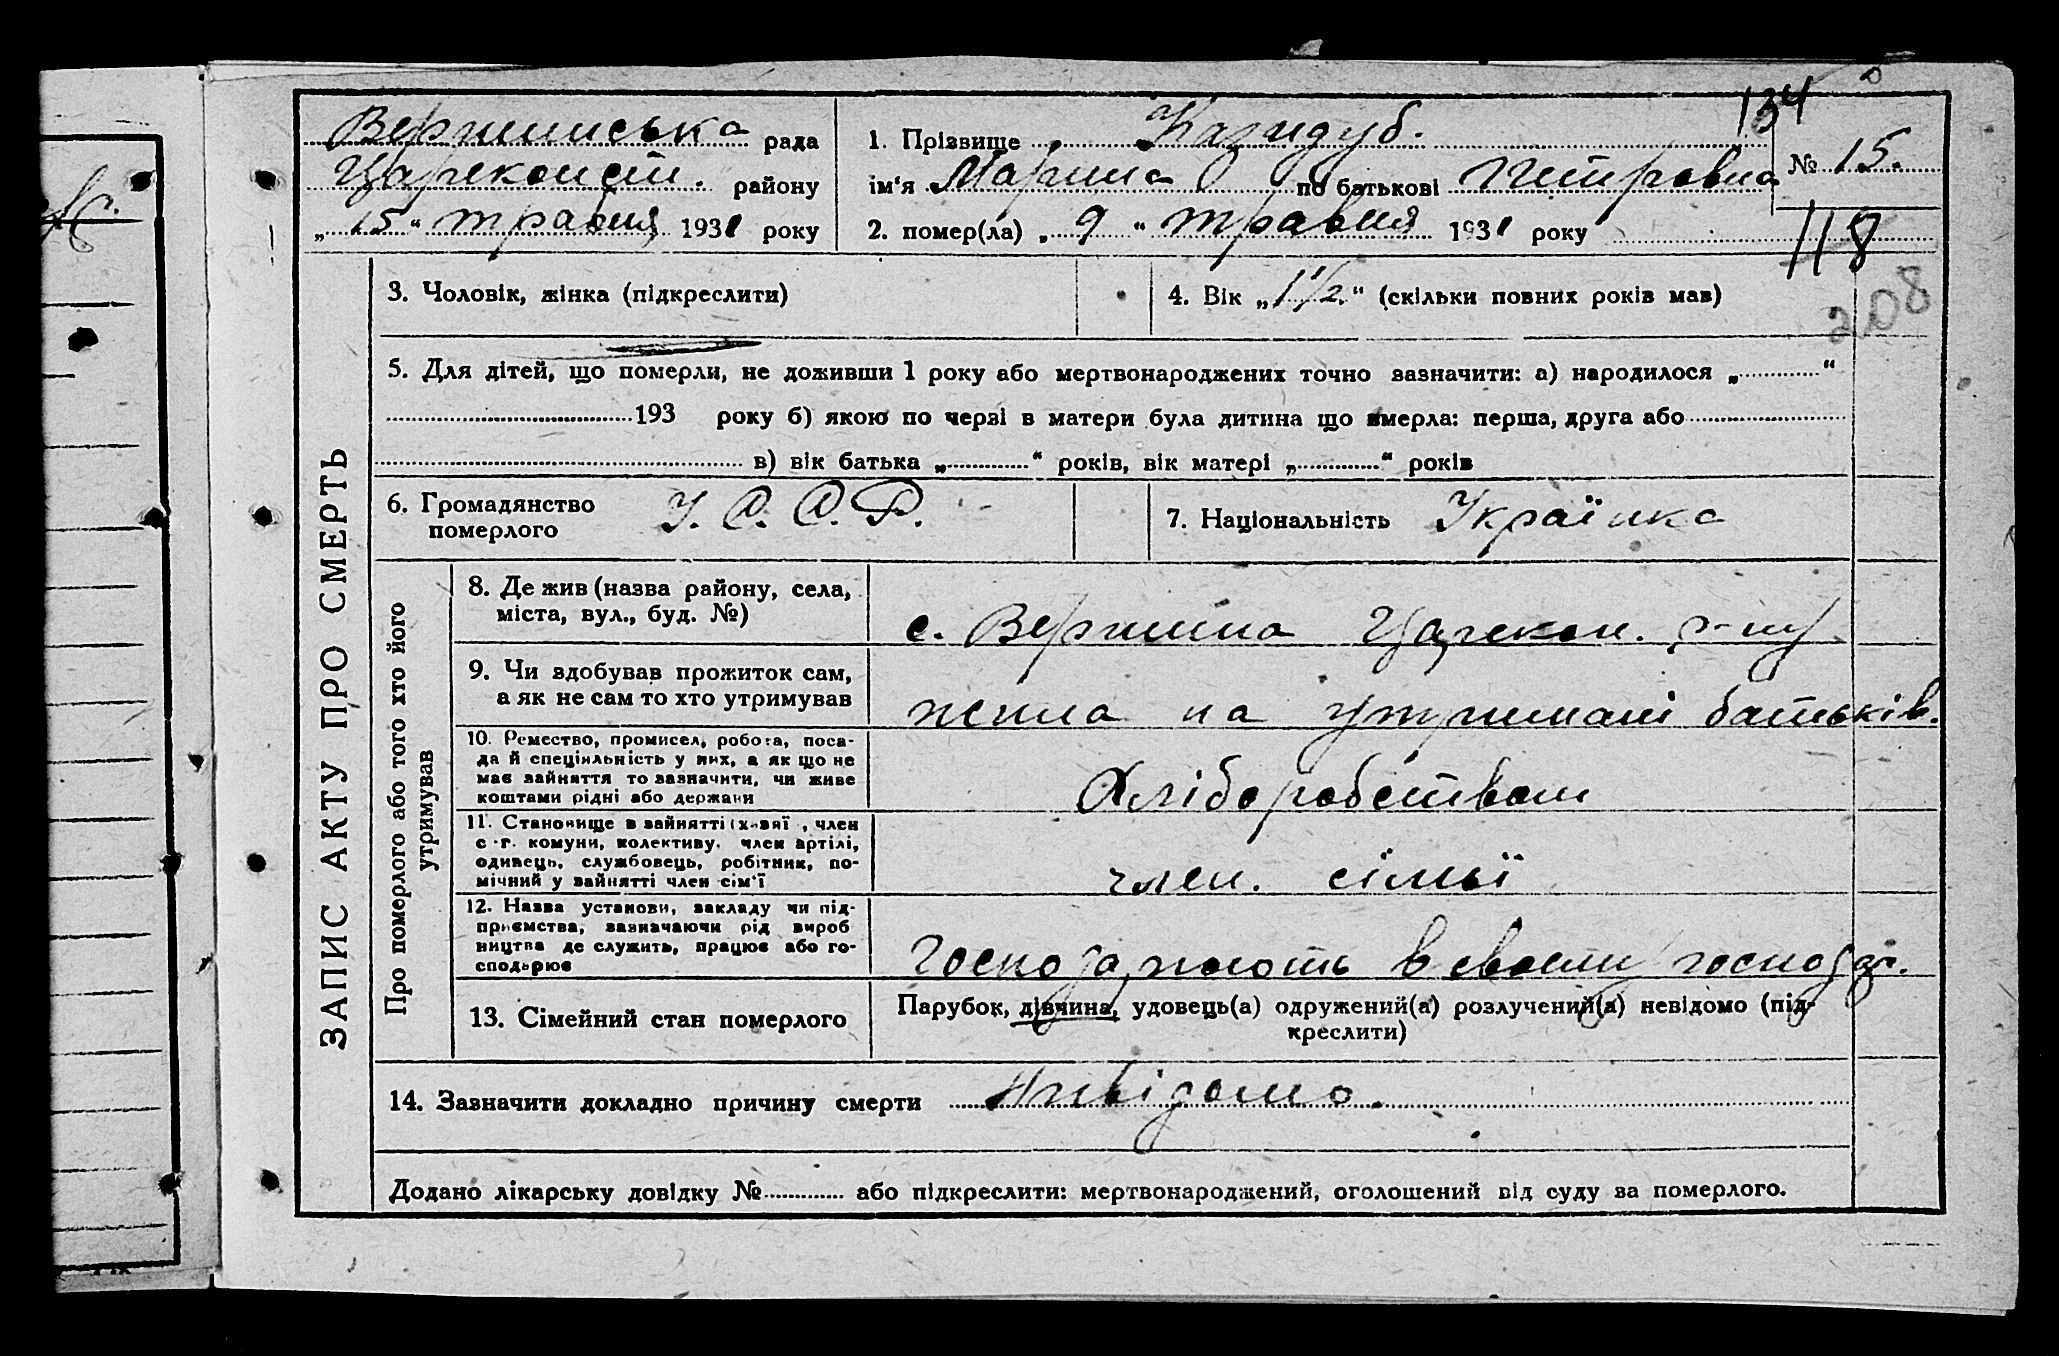 134
Вершинська рада
Цареконст. району
„15“ травня 1931 року
1. Прізвище Казидуб.
ім'я Марина по батькові Петровна
№ 15.
2. помер(ла) „9“ травня 1931 року
118
208
3. Чоловік, жінка (підкреслити)
4. Вік „1 1/2.“ (скільки повних років мав)
5. Для дітей, що померли, не доживши 1 року або мертвонароджених точно зазначити: а) народилося „ “
193 року б) якою по черзі в матери була дитина що вмерла: перша, друга або
в) вік батька „ “ років, вік матері „ “ років
6. Громадянство
померлого
У. С. С. Р.
7. Національність Українка
ЗАПИС АКТУ ПРО СМЕРТЬ
Про померлого або того хто його
утримував
8. Де жив (назва району, села,
міста, вул., буд. №)
с. Вершина Царекон. р-ну
9. Чи здобував прожиток сам,
а як не сам то хто утримував
жила на утримані батьків.
10. Ремество, промисел, робота, поса-
да й спеціяльність у них, а як що не
має зайняття то зазначити, чи живе
коштами рідні або держави
Хліборобством
11. Становище в зайнятті (хазяї, член
с.-г. комуни, колективу, член артілі,
одинець, службовець, робітник, по-
мічний у зайнятті член сім'ї
член. сімьї
12. Назва установи, закладу чи під-
приємства, зазначаючи рід вироб
ництва де служить, працює або го-
сподарює
Господарюють в своєму господар.
13. Сімейний стан померлого
Парубок, дівчина, удовець(а) одружений(а) розлучений(а) невідомо (під-
креслити)
14. Зазначити докладно причину смерти Невідомо.
Додано лікарську довідку № або підкреслити: мертвонароджений, оголошений від суду за померлого.